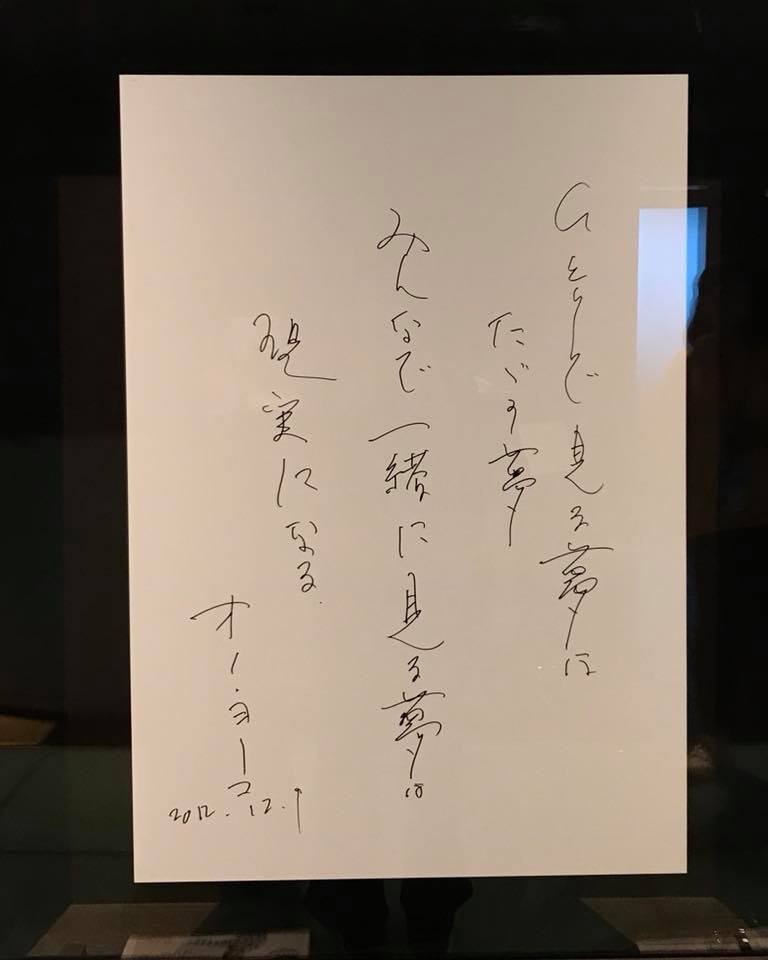 ひとりで見る夢は
たゞの夢
みんなで一緒に見る夢は
現実になる
オノ・ヨーコ
2012.12.9